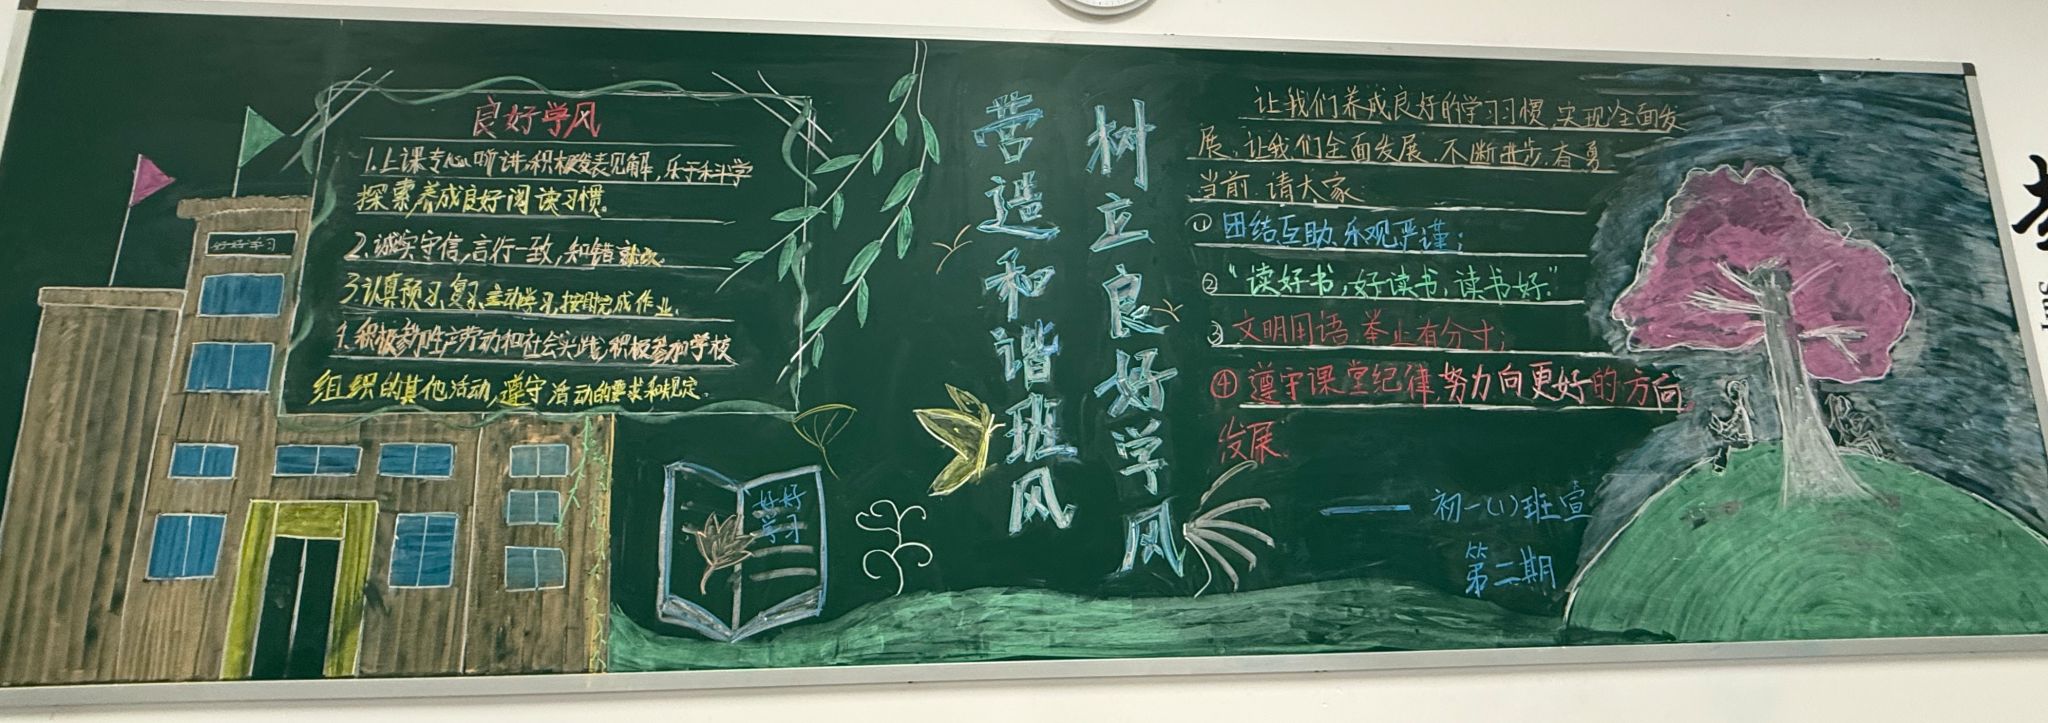 好好学习
良好学风
1.上课专心听讲,积极发表见解,乐于科学
探索养成良好阅读习惯。
2.诚实守信,言行一致,知错就改.
3.认真预习、复习、主动学习,按时完成作业.
4.积极参加生产劳动和社会实践,积极参加学校
组织的其他活动,遵守活动的要求和规定.
好好
学习
营造和谐班风
树立良好学风
让我们养成良好的学习习惯,实现全面发
展,让我们全面发展,不断进步,奋勇
当前,请大家:
①团结互助、乐观严谨;
②“读好书,好读书,读书好.”
③文明用语.举止有分寸;
④遵守课堂纪律,努力向更好的方向
发展.
——初一(1)班宣
第二期